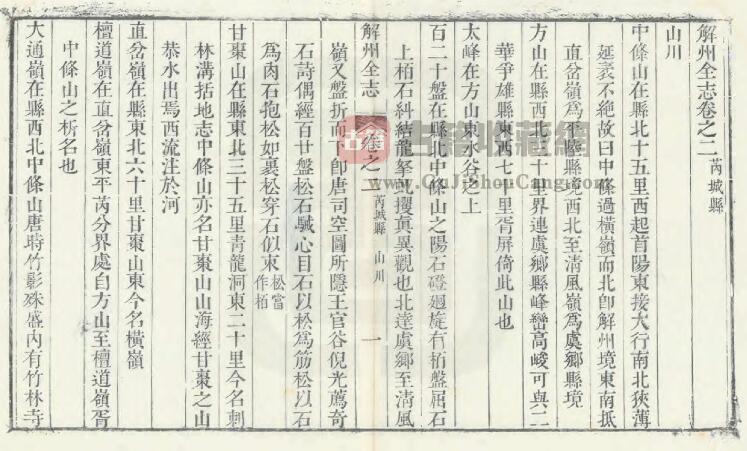 解州全志卷之二 芮城縣
山川
中條山在縣北十五里西起首陽東接太行南北狹薄
延袤不絶故曰中條過橫嶺而北卽解州境東南抵
直岔嶺爲平陸縣境西北至清風嶺爲虞鄉縣境
方山在縣西北十里界連虞鄉縣峰巒高峻可與二
華爭雄縣東西七十里胥屏倚此山也
太峰在方山東水谷之上
百二十盤在縣北中條山之陽石磴廻旋有栢盤屈石
上栢石糾結龍拏攫真異觀也北達虞鄉至清風
解州全志 卷之二 芮城縣 山川 一
嶺又盤折而下卽唐司空圖所隱王官谷倪光薦奇
石詩偶經百廿盤松石駴心目石以松爲筋松以石
爲肉石抱松如裹松穿石似束 松當作栢
甘棗山在縣東北三十五里靑龍洞東二十里今名刺
林溝括地志中條山亦名甘棗山山海經甘棗之山
恭水出焉西流注於河
直岔嶺在縣東北六十里甘棗山東今名橫嶺
檀道嶺在直岔嶺東平芮分界處自方山至檀道嶺胥
中條山之析名也
大通嶺在縣西北中條山唐時竹影殊盛內有竹林寺
古籍收藏網
GuJiShouCang.com